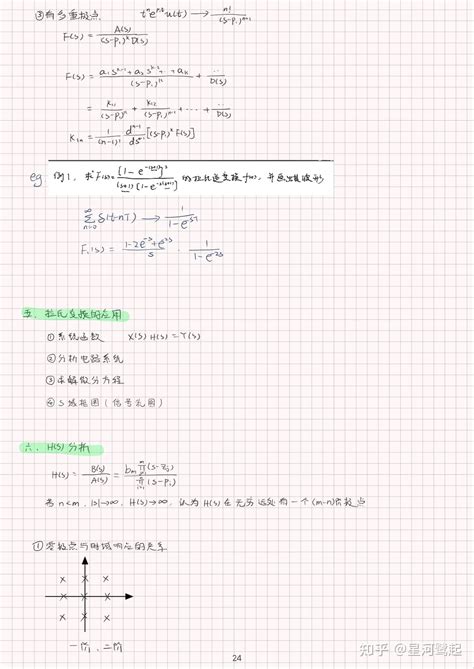 ③有多重极点 tⁿe^{p_i t}u(t) → n!/(s-p_i)^{n+1}
F(s) = A(s)/((s-p_i)^k D(s))
F(s) = (a₁s^{k-1}+a₂s^{k-2}+…+a_k)/(s-p_i)^k + …/D(s)
= k₁₁/(s-p_i)^k + k₁₂/(s-p_i)^{k-1} + … + …/D(s)
k_{1n} = 1/(n-1)! d^{n-1}/ds^{n-1} [(s-p_i)^k F(s)]
eg. 例1. 求 F(s)= [1-e^{-(s+1)}]²/((s+1)[1-e^{-2(s+1)}]) 的拉氏逆变换f(t), 并画出其波形
∑_{n=0}^{∞} δ(t-nT) → 1/(1-e^{-sT})
F₁(s) = (1-2e^{-s}+e^{-2s})/s · 1/(1-e^{-2s})
五、拉氏变换的应用
①系统函数 X(s) H(s) = Y(s)
②分析电路系统
③求解微分方程
④S域框图(信号流图)
六、H(s)分析
H(s) = B(s)/A(s) = b_m ∏(s-z_j)/∏(s-p_i)
若 n<m, |s|→∞, H(s)→∞, 认为H(s)在无穷远处有一个(m-n)阶极点
①零极点与时域响应的关系
一阶、二阶
24
知乎 @星河鹭起